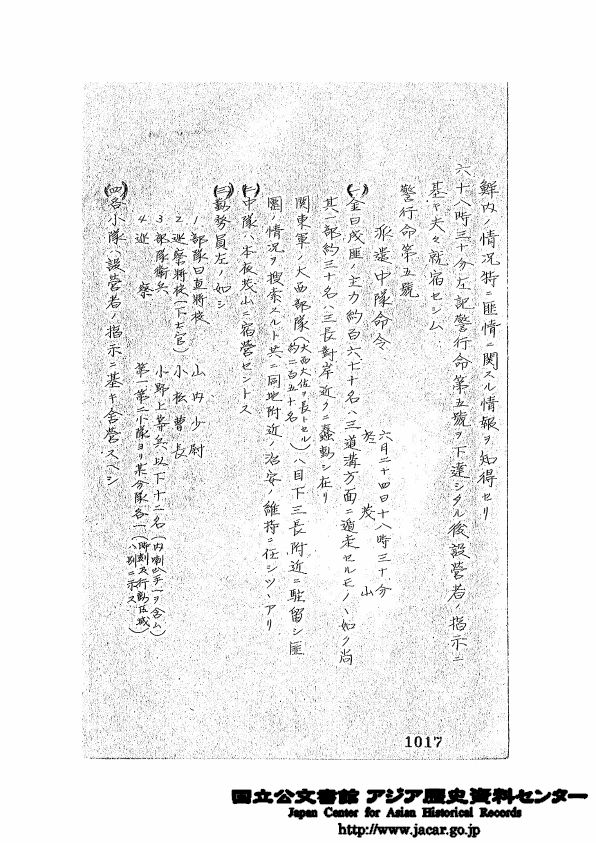 鮮内ノ情況特ニ匪情ニ関スル情報ヲ知得セリ
六十八時三十分左記警行命第五號ヲ下達シタル後設營者ノ指示ニ
基キ夫々就宿セシム
警行命第五號
派遣中隊命令
六月二十四日十八時三十分
於茂山
(一)金日成匪ノ主力約百六七十名ハ三道溝方面ニ遁走セルモノヽ如ク尚
其ノ一部約三十名ハ三長對岸近クニ蠢動シ在リ
関東軍ノ大西部隊(大西大佐ヲ長トセル約二百五十名)ハ目下三長附近ニ駐留シ匪
團ノ情況ヲ搜索スルト共ニ同地附近ノ治安ノ維持ニ任シツヽアリ
(二)中隊ハ本夜茂山ニ宿營セントス
(三)勤務員左ノ如シ
1 部隊日直將校 山内少尉
2 巡察將校(下士官) 小板曹長
3 部隊衛兵 小野上等兵以下十二名(内喇叭手一ヲ含ム)
4 巡察 第一第二小隊ヨリ某分隊各一(時刻及行動区域ハ別ニ示ス)
(四)各小隊ハ設營者ノ指示ニ基キ舎營スベシ
1017
国立公文書館 アジア歴史資料センター
Japan Center for Asian Historical Records
http://www.jacar.go.jp